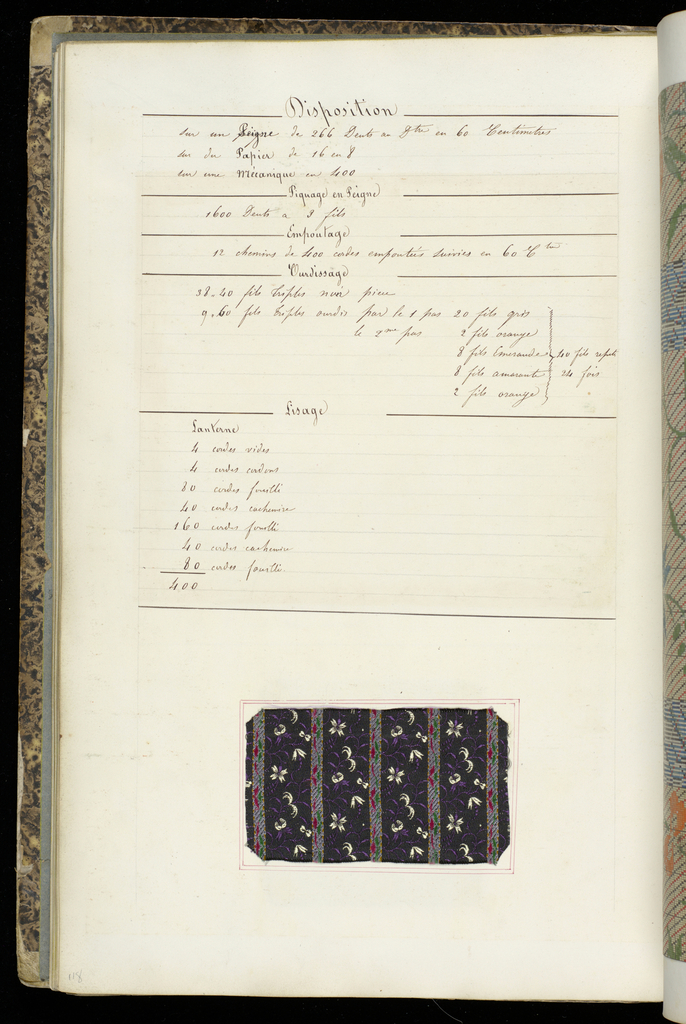 Disposition
sur une Peigne de 266 Dents au D.tre en 60 Centimetres
sur du Papier de 16 en 8
sur une Mécanique en 400
Piquage en Peigne
1600 Dents a 3 fils
Empoutage
12 chemins de 400 cordes empoutées suivies en 60 C tres
Ourdissage
38.40 fils triples noir pieces
9.60 fils triples ourdis par le 1 pas 20 fils gris
le 2me pas 2 fils orange
8 fils Emeraude 40 fils répétés
8 fils amarante 24 fois
2 fils orange
Lisage
Lanterne
4 cordes vides
4 cordes cordons
80 cordes fouetté
40 cordes cachemire
160 cordes fouetté
40 cordes cachemire
80 cordes fouetté
400
118